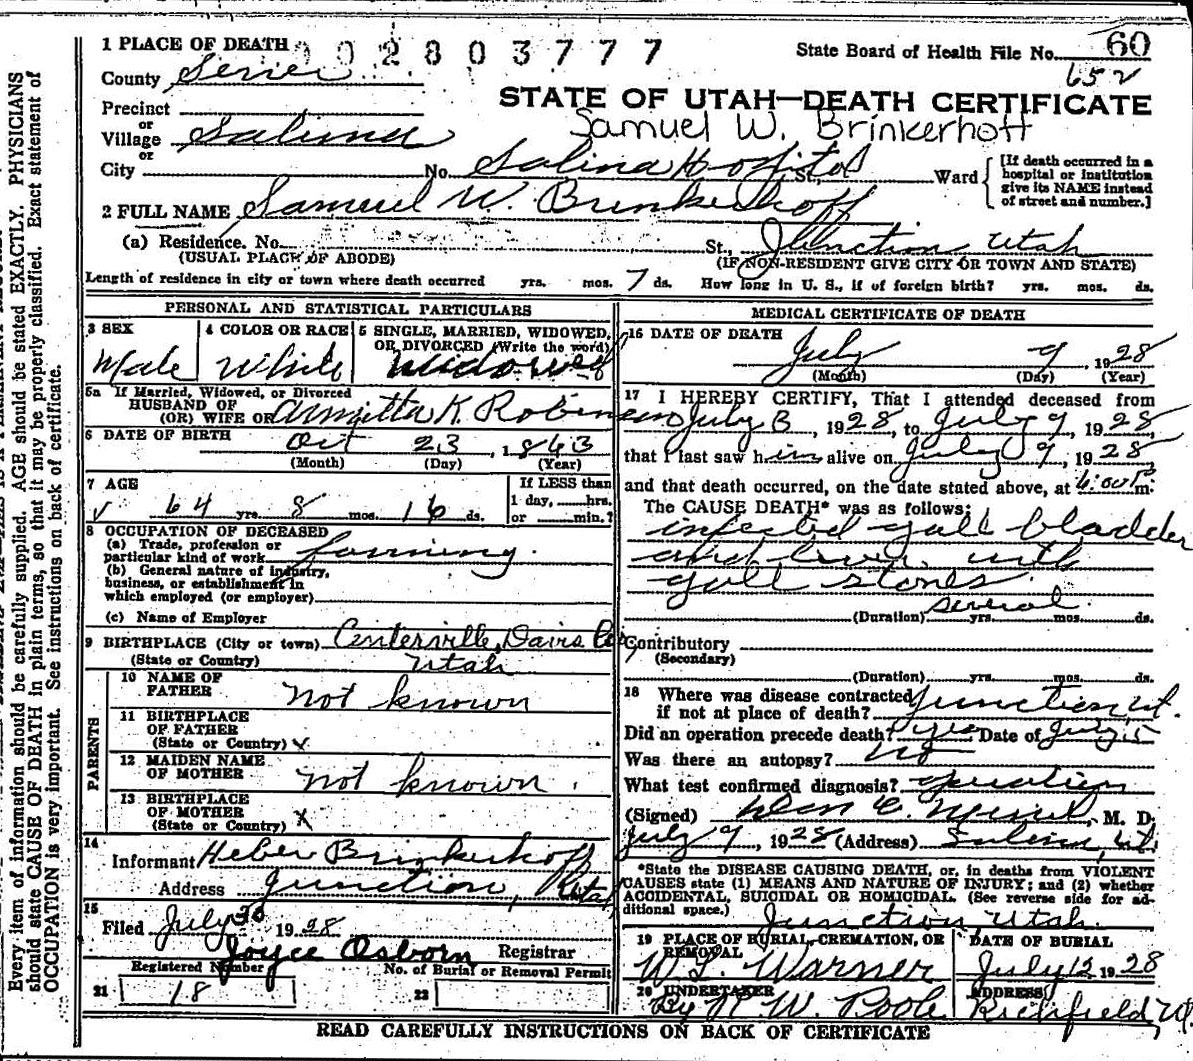 1 PLACE OF DEATH 0 0 2 8 0 3 7 7 7 State Board of Health File No. 60
County Sevier 652
STATE OF UTAH—DEATH CERTIFICATE
Precinct
or
Village Salina Samuel W. Brinkerhoff
or
City No. Salina Hospital St., Ward [If death occurred in a hospital or institution give its NAME instead of street and number.]
2 FULL NAME Samuel W. Brinkerhoff
(a) Residence. No. St., Junction Utah
(USUAL PLACE OF ABODE) (IF NON-RESIDENT GIVE CITY OR TOWN AND STATE)
Length of residence in city or town where death occurred yrs. mos. 7 ds. How long in U. S., if of foreign birth? yrs. mos. ds.
PERSONAL AND STATISTICAL PARTICULARS
3 SEX 4 COLOR OR RACE 5 SINGLE, MARRIED, WIDOWED, OR DIVORCED (Write the word)
Male White Widowed
5a If Married, Widowed, or Divorced
HUSBAND OF
(OR) WIFE OF Armitta K. Robinson
6 DATE OF BIRTH Oct 23, 1863
(Month) (Day) (Year)
7 AGE If LESS than
1 day, hrs.
64 yrs. 8 mos. 16 ds. or min.?
8 OCCUPATION OF DECEASED
(a) Trade, profession or
particular kind of work farming.
(b) General nature of industry,
business, or establishment in
which employed (or employer)
(c) Name of Employer
9 BIRTHPLACE (City or town) Centerville, Davis Co
(State or Country) Utah
PARENTS
10 NAME OF
FATHER not known
11 BIRTHPLACE
OF FATHER
(State or Country)
12 MAIDEN NAME
OF MOTHER not known.
13 BIRTHPLACE
OF MOTHER
(State or Country) X
14
Informant Heber Brinkerhoff
Address Junction, Utah
15
Filed July 1928
Joyce Osborn Registrar
Registered Number No. of Burial or Removal Permit
21 18 22
MEDICAL CERTIFICATE OF DEATH
16 DATE OF DEATH
July 9, 1928
(Month) (Day) (Year)
17 I HEREBY CERTIFY, That I attended deceased from
July 3, 1928, to July 9, 1928,
that I last saw him alive on July 9, 1928
and that death occurred, on the date stated above, at 6:00 P m.
The CAUSE DEATH* was as follows:
infected gall bladder
and liver with
gall stones.
(Duration) several yrs. mos. ds.
Contributory
(Secondary)
(Duration) yrs. mos. ds.
18 Where was disease contracted
if not at place of death? Junction, Ut.
Did an operation precede death? yes Date of July 5
Was there an autopsy? No
What test confirmed diagnosis? operation
(Signed) M. D.
July 9, 1928 (Address) Salina, Ut.
*State the DISEASE CAUSING DEATH, or, in deaths from VIOLENT
CAUSES state (1) MEANS AND NATURE OF INJURY; and (2) whether
ACCIDENTAL, SUICIDAL OR HOMICIDAL. (See reverse side for ad-
ditional space.) Junction, Utah.
19 PLACE OF BURIAL, CREMATION, OR REMOVAL DATE OF BURIAL
W. L. Warner July 12 1928
20 UNDERTAKER ADDRESS
By N. W. Poole Richfield, Ut.
READ CAREFULLY INSTRUCTIONS ON BACK OF CERTIFICATE
Every item of information should be carefully supplied. AGE should be stated EXACTLY. PHYSICIANS
should state CAUSE OF DEATH in plain terms, so that it may be properly classified. Exact statement of
OCCUPATION is very important. See instructions on back of certificate.